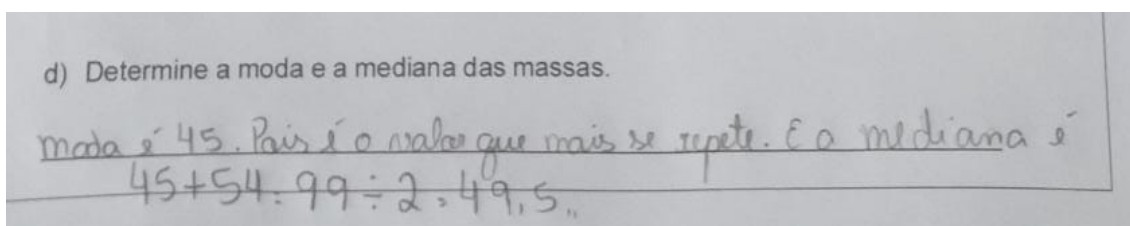 d) Determine a moda e a mediana das massas.
moda é 45. Pois é o valor que mais se repete. E a mediana é
45+54: 99÷2, 49,5,,